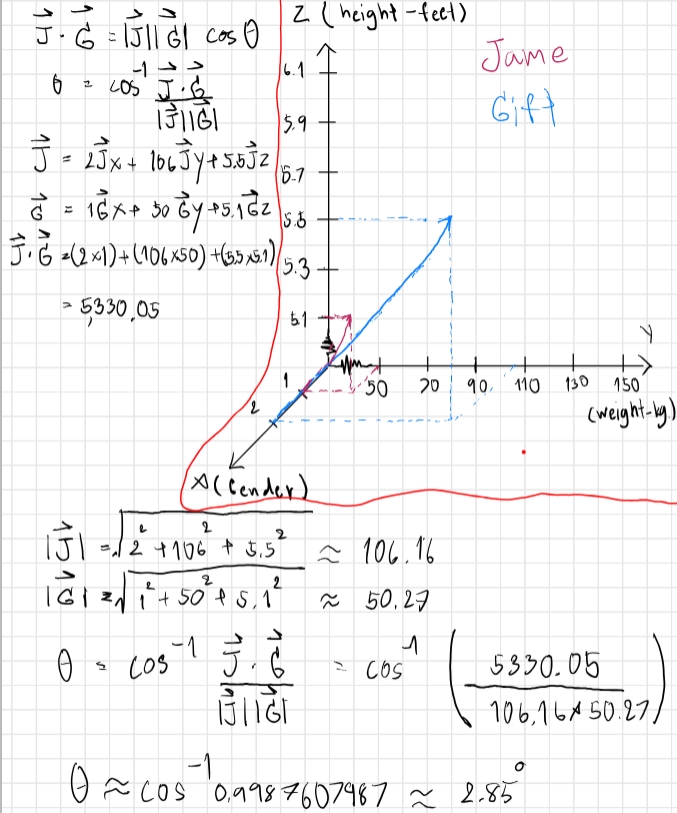 J⃗ · G⃗ = |J⃗||G⃗| cos θ
θ = cos⁻¹ J⃗·G⃗ / |J⃗||G⃗|
J⃗ = 2J⃗x + 106J⃗y + 5.5J⃗z
G⃗ = 1G⃗x + 50G⃗y + 5.1G⃗z
J⃗·G⃗ = (2×1) + (106×50) + (5.5×5.1)
= 5330.05
Z (height-feet)
6.1
5.9
5.7
5.5
5.3
5.1
Jame
Gift
Y
50 70 90 110 130 150
(weight-kg.)
1
2
X (Gender)
|J⃗| = √2² + 106² + 5.5² ≈ 106.16
|G⃗| = √1² + 50² + 5.1² ≈ 50.27
θ = cos⁻¹ J⃗·G⃗ / |J⃗||G⃗| = cos⁻¹ (5330.05 / 106.16 × 50.27)
θ ≈ cos⁻¹ 0.9987607987 ≈ 2.85°